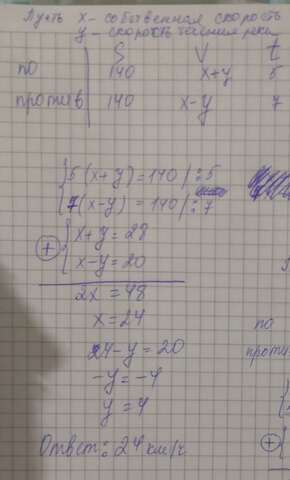 Пусть x - собственная скорость
y - скорость течения реки
S V t
по 140 x+y 5
против 140 x-y 7
5(x+y)=140 | :5
7(x-y) = 140 | :7
x+y=28
x-y=20
2x=48
x=24
24-y=20
-y=-4
y=4
Ответ: 24 км/ч
по